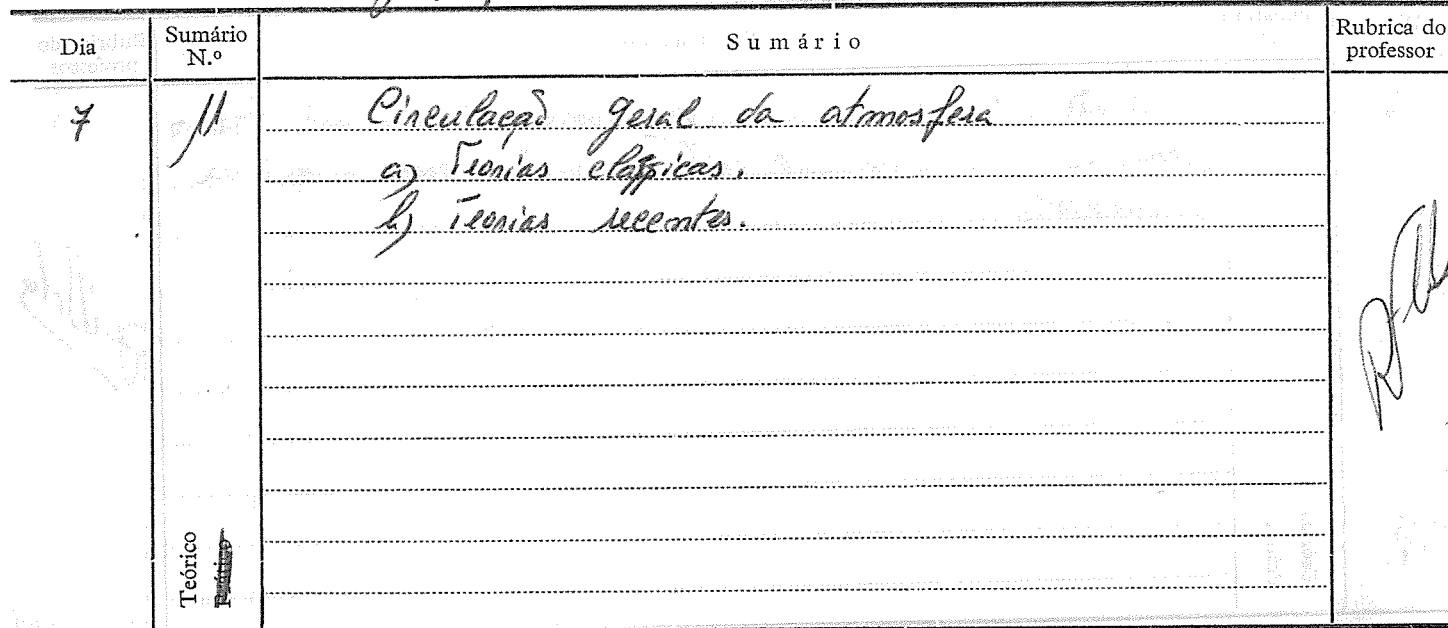 Dia Sumário N.º Sumário Rubrica do professor
7 11 Circulação geral da atmosfera
a) Teorias clássicas.
b) Teorias recentes.
Teórico